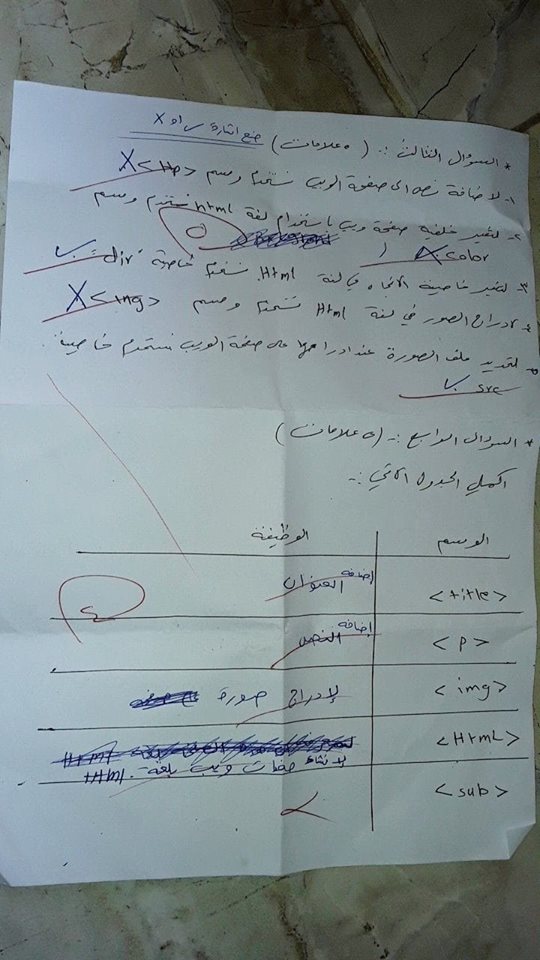 * السؤال الثالث :. (٥ علامات) ضع اشارة √ او X
١- لاضافة نص الى صفحة الويب نستخدم وسم <Hp> X
٢- لتغيير خلفية صفحة ويب باستخدام لغة html نستخدم وسم
color X
٥
٣- لتغير خاصية الاتجاه في لغة Html نستخدم خاصية dir √
٤- لادراج الصور في لغة Html نستخدم وسم <ing> X
٥- لتحديد ملف الصورة عند ادراجها على صفحة الويب نستخدم خاصية
src √
* السؤال الرابع :- (٥ علامات)
اكملي الجدول الاتي :-
الوسم الوظيفة
<title> إضافة العنوان
<p> إضافة النص
<img> لإدراج صورة
<Html> لانشاء صفحات ويب بلغة Html.
<sub>
٤